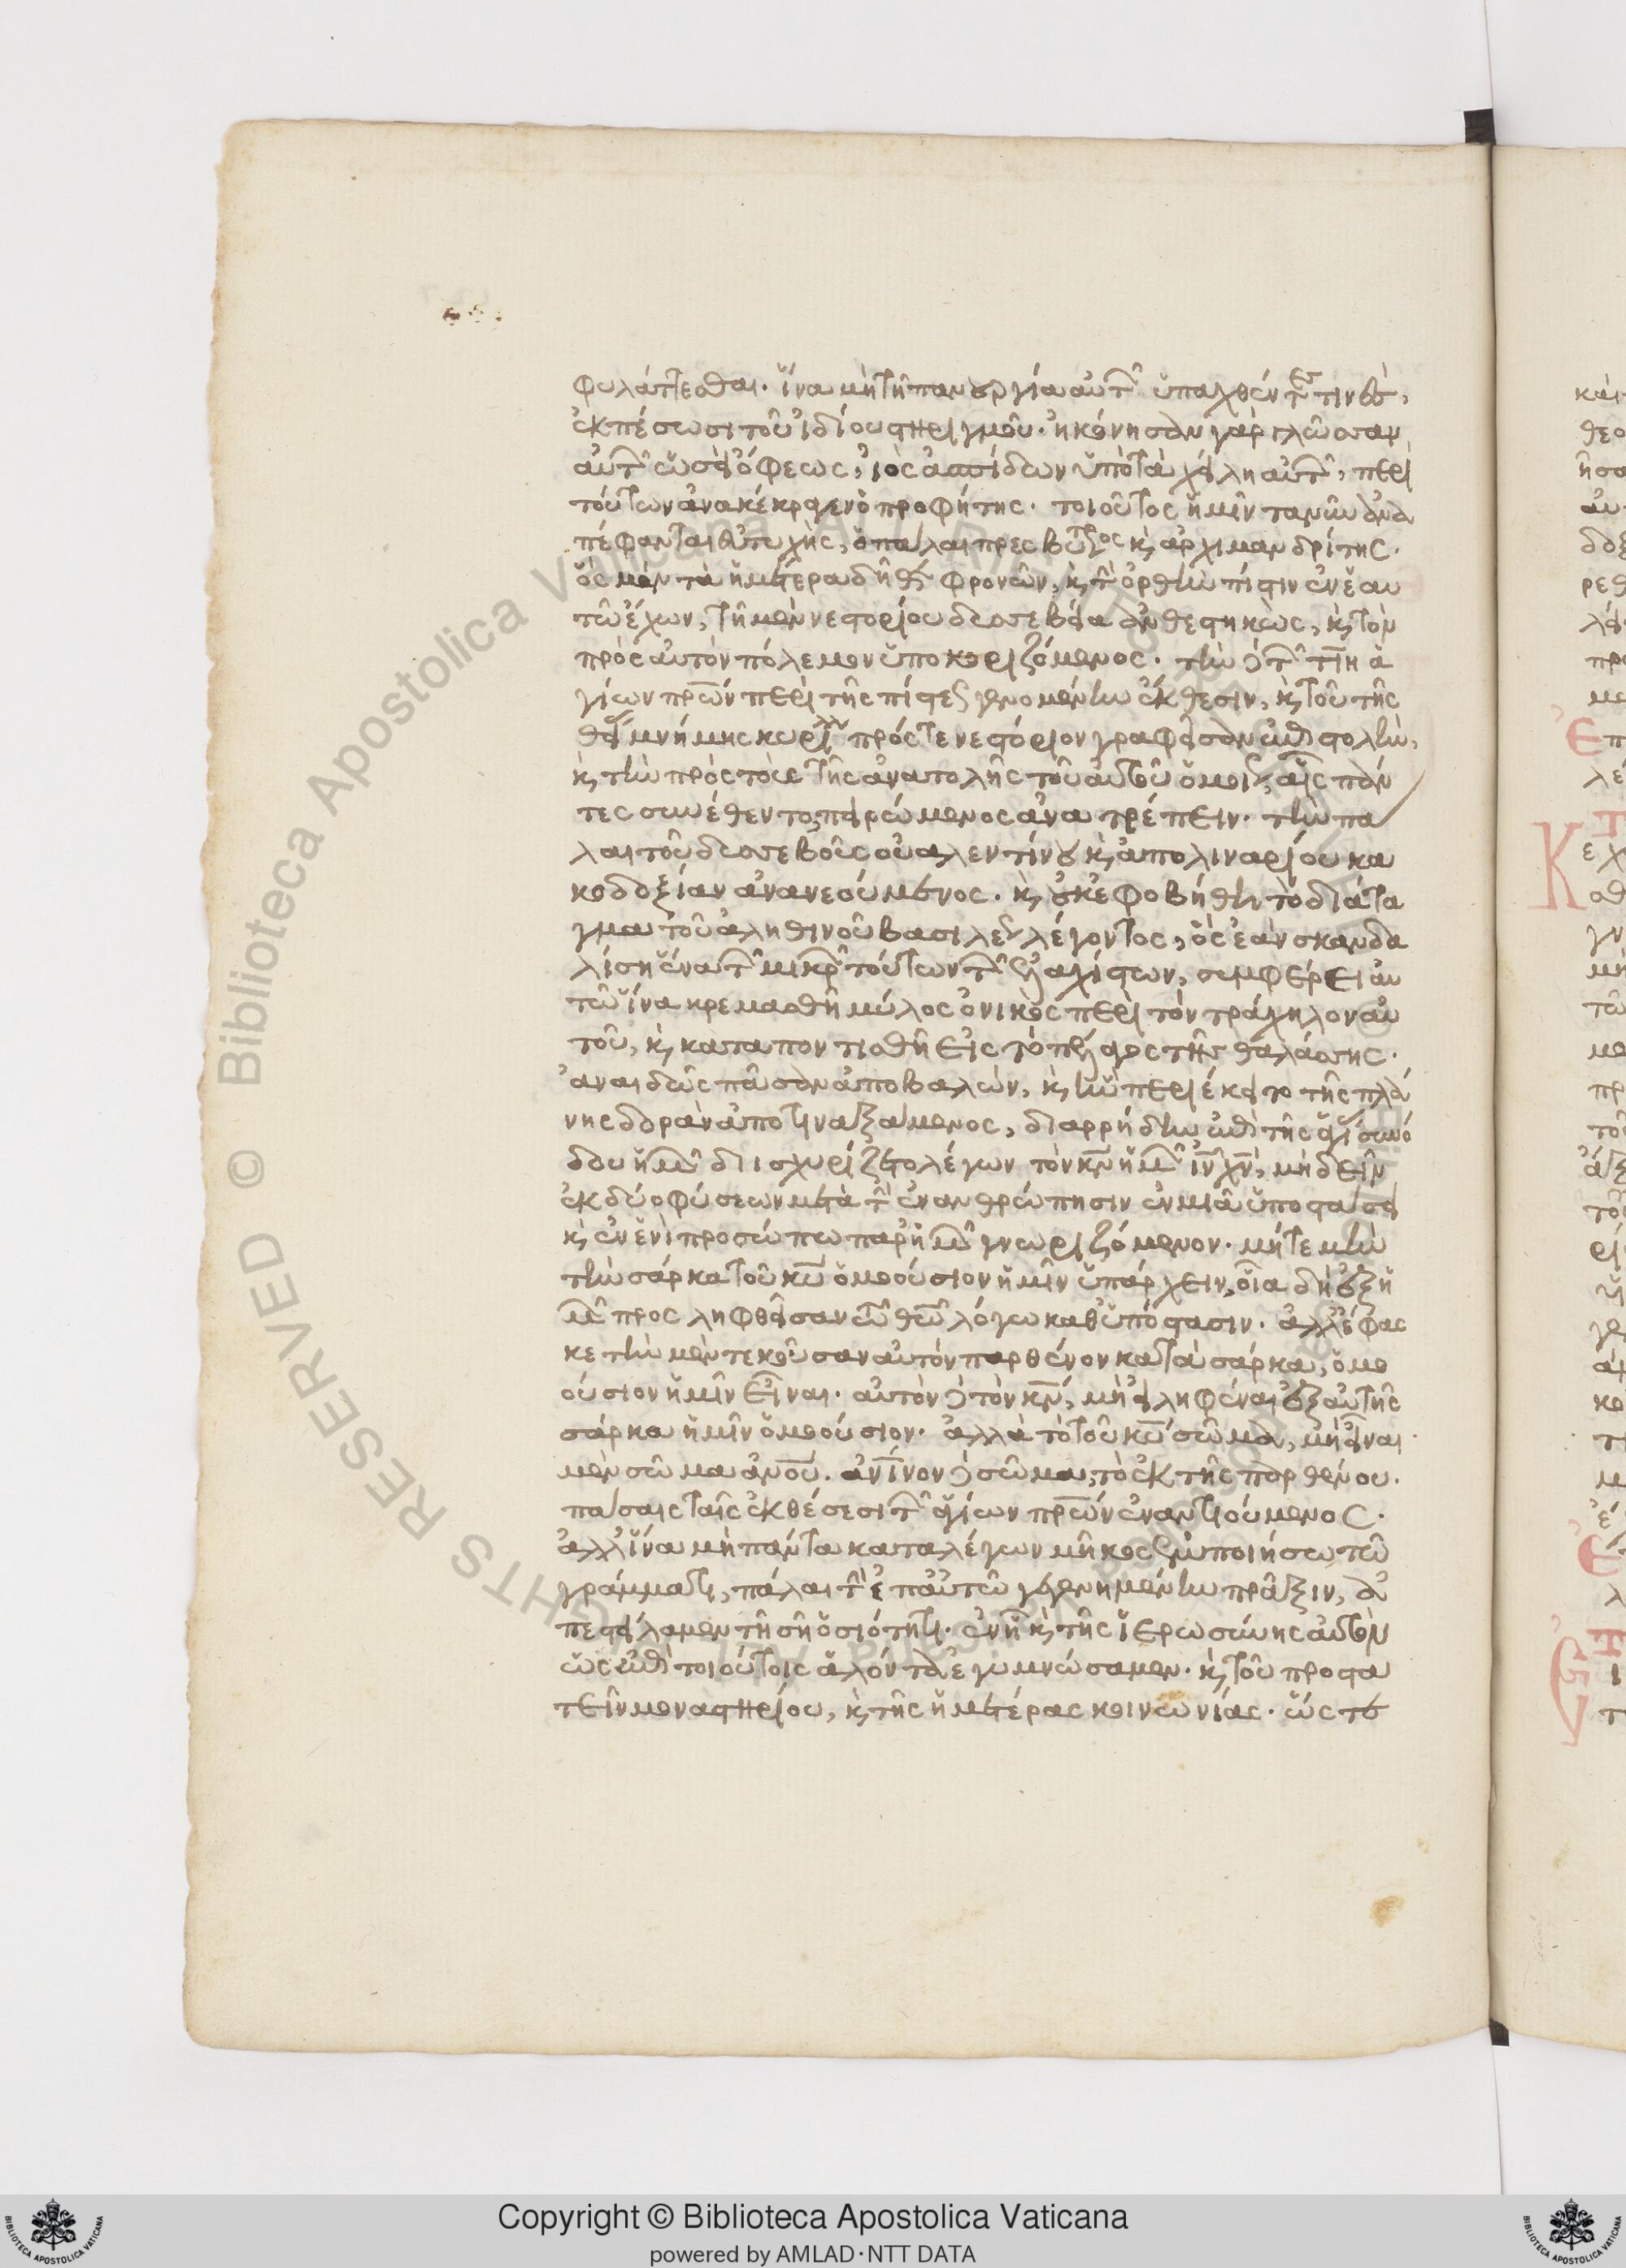 φυλάττεσθαι. ἵνα μὴ τῆ πανουργία αὐτῶν ὑπαχθέντες τινὲς,
ἐκπέσωσι τοῦ ἰδίου στηριγμοῦ. ἠκόνησαν γὰρ γλῶσσαν
αὐτῶν ὡσεὶ ὄφεως, ἰὸς ἀσπίδων ὑπὸ τὰ χείλη αὐτῶν, περὶ
τούτων ἀνακέκραγεν ὁ προφήτης. τοιοῦτος ἡμῖν τανῦν ἀνα
πέφανται εὐτυχὴς, ὁ πάλαι πρεσβύτερος κ ἀρχιμανδρίτης.
ὃς μὲν τὰ ἡμέτερα δῆθεν φρονῶν, κ τὴν ὀρθὴν πίστιν ἐν ἑαυ
τῶ ἔχων, τῆ μὲν νεστορίου δυσσεβεία ἀνθεστηκὼς, κ τὸν
πρὸς αὐτὸν πόλεμον ὑποκοριζόμενος. τὴν δὲ τῶν τιη ἁ
γίων πρων περὶ τῆς πίστεως γενομένην ἔκθεσιν, κ τοῦ τῆς
θείας μνήμης κυρίλλου πρός τε νεστόριον γραφεῖσαν ἐπιστολὴν,
κ τὴν πρὸς τοὺς τῆς ἀνατολῆς τοῦ αὐτοῦ ὁμοίως, αἷς πάν
τες συνέθεντο, πειρώμενος ἀνατρέπειν. τὴν πά
λαι τοῦ δυσσεβοῦς οὐαλεντίνου κ ἀπολιναρίου κα
κοδοξίαν ἀνανεούμενος. κ οὐκ ἐφοβήθη τὸ διάτα
γμα τοῦ ἀληθινοῦ βασιλέως λέγοντος, ὃς ἐὰν σκανδα
λίση ἕνα τῶν μικρῶν τούτων τῶν ἐλαχίστων, συμφέρει αὐ
τῶ ἵνα κρεμασθῆ μύλος ὀνικὸς περὶ τὸν τράχηλον αὐ
τοῦ, κ καταποντισθῆ εἰς τὸ πέλαγος τῆς θαλάσσης.
ἀναιδῶς πᾶσαν ἀποβαλὼν, κ ἣν περιέκειτο τῆς πλά
νης δορὰν ἀποτιναξάμενος, διαρρήδην ἐπὶ τῆς ἁγίας συνό
δου ἡμῶν διισχυρίζετο λέγων τὸν κν ἡμῶν ιν χν, μὴ δεῖν
ἐκ δύο φύσεων μετὰ τὴν ἐνανθρώπησιν ἐν μιᾶ ὑποστάσει
κ ἐν ἑνὶ προσώπω παρ' ἡμῶν γνωριζόμενον. μήτε μὴν
τὴν σάρκα τοῦ κυ ὁμοούσιον ἡμῖν ὑπάρχειν, οἷα δὴ ἐξ ἡ
μῶν προσληφθεῖσαν τῶ θεῶ λόγω καθ' ὑπόστασιν. ἀλλ' ἔφας
κε τὴν μὲν τεκοῦσαν αὐτὸν παρθένον κατὰ σάρκα, ὁμο
ούσιον ἡμῖν εἶναι. αὐτὸν δὲ τὸν κν, μὴ εἰληφέναι ἐξ αὐτῆς
σάρκα ἡμῖν ὁμοούσιον. ἀλλὰ τὸ τοῦ κυ σῶμα, μὴ εἶναι
μὲν σῶμα ἀνου. ἀνινον δὲ σῶμα, τὸ ἐκ τῆς παρθένου.
πάσαις ταῖς ἐκθέσεσι τῶν ἁγίων πρων ἐναντιούμενος.
ἀλλ' ἵνα μὴ πάντα καταλέγων μῆκος ἐμποιήσω τῶ
γράμματι, πάλαι τὴν ἐπ' αὐτῶ γεγενημένην πρᾶξιν, ἀ
πεστείλαμεν τῆ σῆ ὁσιότητι. ἐν ἧ κ τῆς ἱερωσύνης αὐτὸν
ὡς ἐπὶ τοιούτοις ἁλόντα ἐγυμνώσαμεν. κ τοῦ προστα
τεῖν μοναστηρίου, κ τῆς ἡμετέρας κοινωνίας. ὥς τε